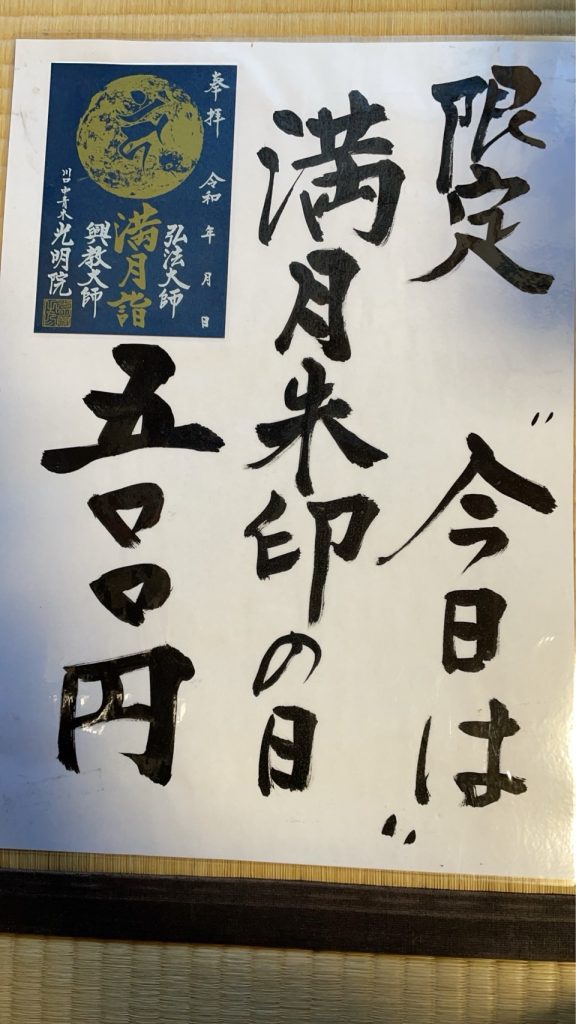 限定 〝今日は
満月朱印の日〟
五〇〇円
奉拝 令和 年 月 日
弘法大師
満月詣
興教大師
川口中青木 光明院